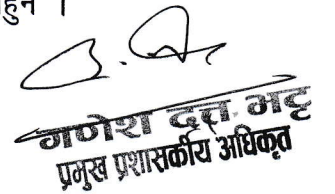 हुन ।
गणेश दत्त भट्ट
प्रमुख प्रशासकीय अधिकृत